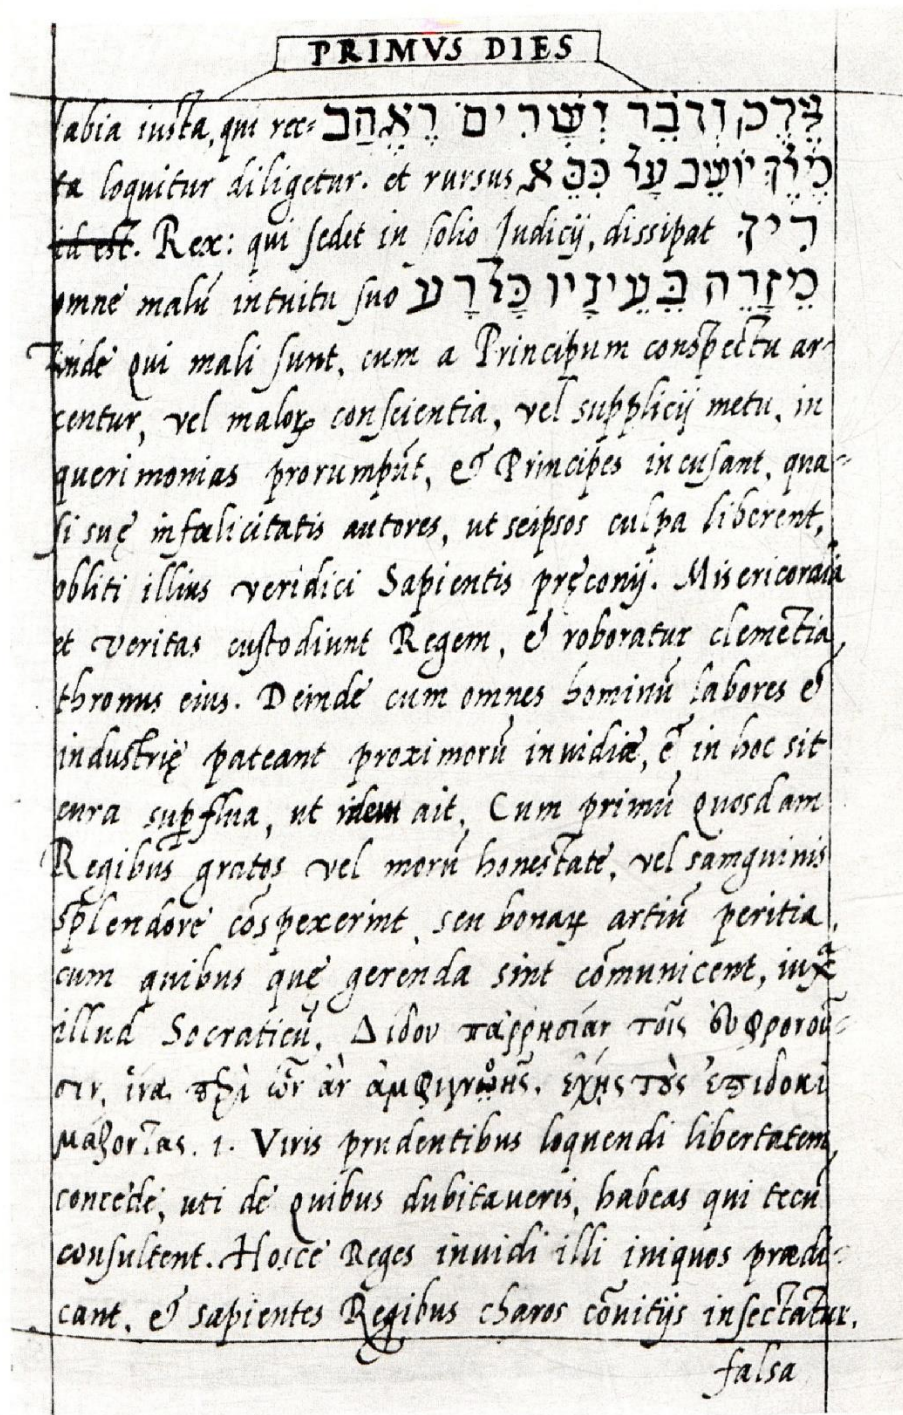 PRIMVS DIES
labia iusta, qui rec= צֶדֶק וְדֹבֵר יְשָׁרִים יֶאֱהַב
ta loquitur diligetur. et rursus, מֶלֶךְ יוֹשֵׁב עַל כִּסֵּא
id est. Rex: qui sedet in solio Judicij, dissipat דִין
omne malũ intuitu suo מְזָרֶה בְעֵינָיו כָּל רָע
Inde qui mali sunt, cum a Principum conspectu ar-
centur, vel maloꝝ conscientia, vel supplicij metu, in
querimonias prorumpũt, & Principes incusant, qua-
si suę infœlicitatis autores, ut seipsos culpa liberent,
obliti illius veridici Sapientis pręconij. Misericordia
et veritas custodiunt Regem, & roboratur clemẽtia
thronus eius. Deinde cum omnes hominũ labores &
industrię pateant proximorũ inuidiæ, & in hoc sit
cura suꝑflua, ut idem ait, Cum primũ quosdam
Regibus gratos vel morũ honestate, vel samguinis
splendore cõspexerint, seu bonaꝝ artiũ peritia,
cum quibus quę gerenda sint cõmunicent, iuxᵃ
illud Socraticũ, Δίδου παρρησίαν τοῖς ἐυφρονοῦ-
σιν, ἵνα περὶ ὧν ἂν ἀμφιγνοῇς, ἔχῃς τοὺς ἐπιδοκι
μάζοντας. i. Viris prudentibus loquendi libertatem
concede, uti de quibus dubitaueris, habeas qui tecũ
consultent. Hosce Reges inuidi illi iniquos prædi-
cant, & sapientes Regibus charos cõuitijs insectãtur.
falsa